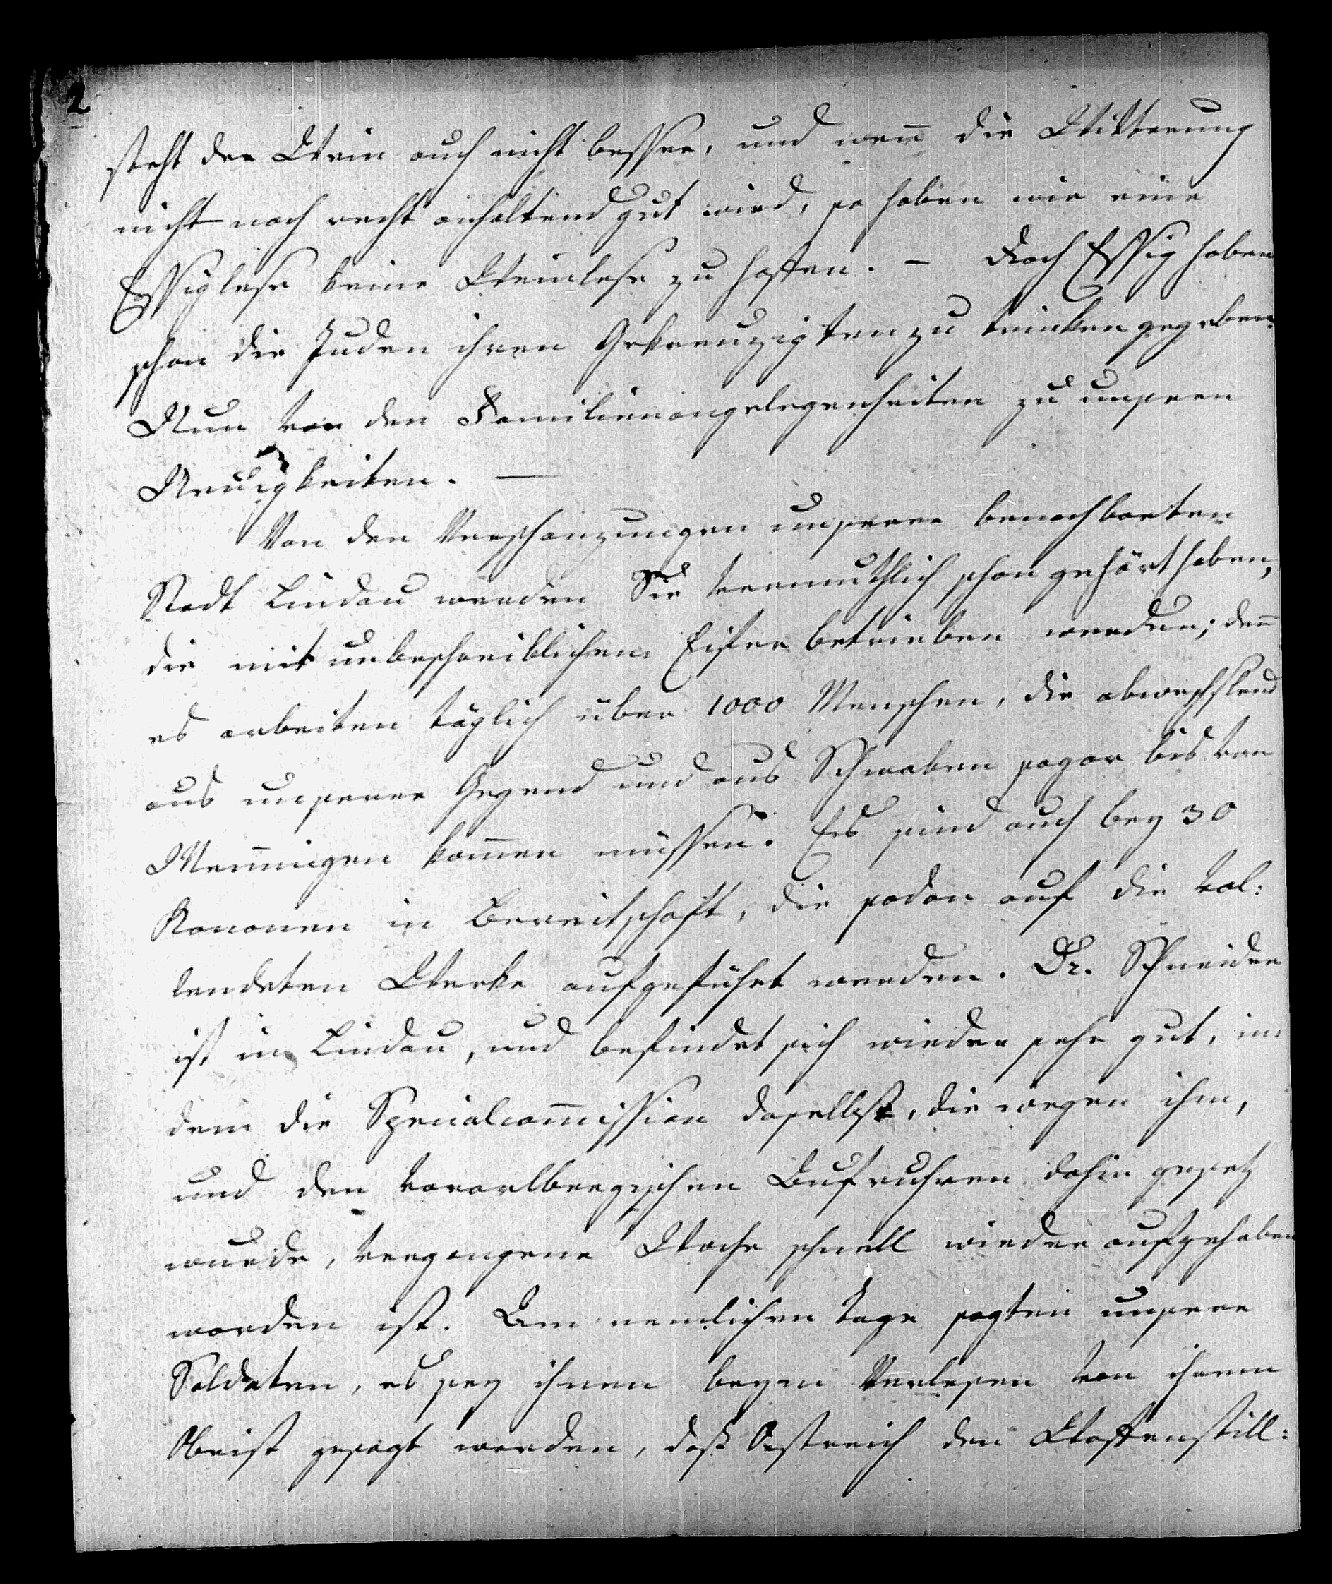 2
steht der Wein auch nicht besser, und wen̄ die Witterung
nicht noch recht anhaltend gut wird, so haben wir eine
Essiglese keine Weinlese zu hoffen. – Doch Essig haben
schon die Juden ihren Gekreuzigten zu trinken gegeben.
Nun von den Familienangelegenheiten zu unsern
Neuigkeiten. —
Von den Verschanzungen unserer benachbarten
Stadt Lindau werden Sie vermuthlich schon gehört haben,
die mit unbeschreiblichem Eifer betrieben werden; den̄
es arbeiten täglich über 1000 Menschen, die abwechslend
aus unserer Gegend und aus Schwaben sogar bis von
Mem̄ingen kom̄en müssen. Es sind auch bey 30
Kanonen in Bereitschaft, die sodan auf die vol:
lendeten Werke aufgeführt werden. Dr. Schneider
ist in Lindau, und befindet sich wieder sehr gut, in
dem die Specialcom̄ission daselbst, die wegen ihm,
und den vorarlbergischen Aufruhren dahin gesetz
wurde, vergangene Woche schnell wieder aufgehoben
worden ist. Am nemlichen Tage sagten unsere
Soldaten, es sey ihnen beym Verlesen von ihrem
Obrist gesagt worden, daß Östreich den Waffenstill: